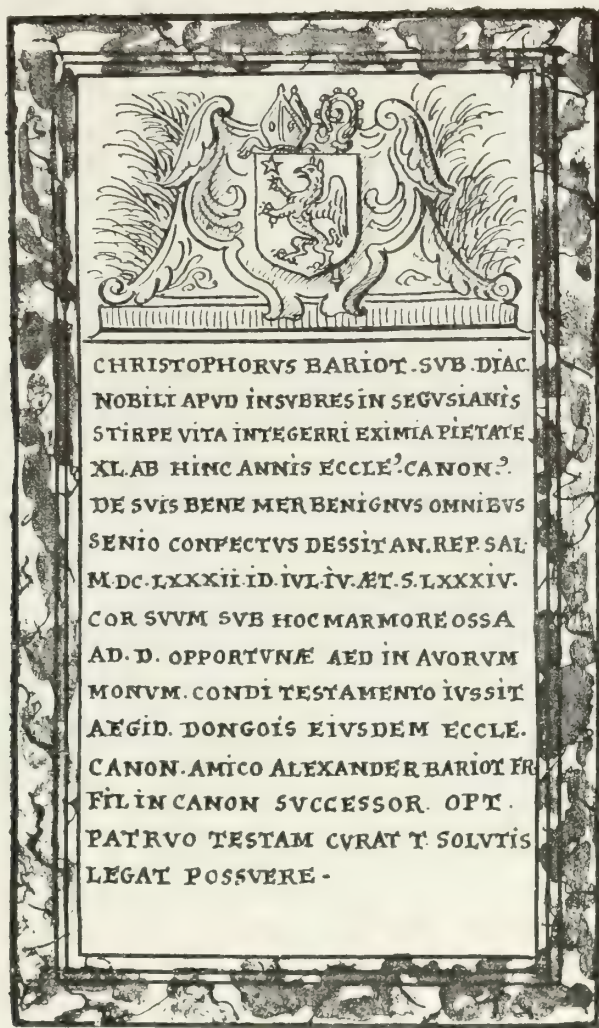 CHRISTOPHORVS BARIOT . SVB . DIAC.
NOBILI APVD INSVBRES IN SEGVSIANIS
STIRPE VITA INTEGERRI EXIMIA PIETATE
XL. AB HINC ANNIS ECCLE? CANON?.
DE SVIS BENE MER BENIGNVS OMNIBVS
SENIO CONFECTVS DESSIT AN. REP. SAL.
M. DC. LXXXII. ID. IVL. IV. ÆT. S. LXXXIV.
COR SVVM SVB HOC MARMORE OSSA
AD. D. OPPORTVNÆ AED IN AVORVM
MONVM. CONDI TESTAMENTO IVSSIT
AEGID. DONGOIS EIVSDEM ECCLE.
CANON. AMICO ALEXANDER BARIOT FR.
FIL IN CANON SVCCESSOR. OPT.
PATRVO TESTAM CVRAT T SOLVTIS
LEGAT POSSVERE -